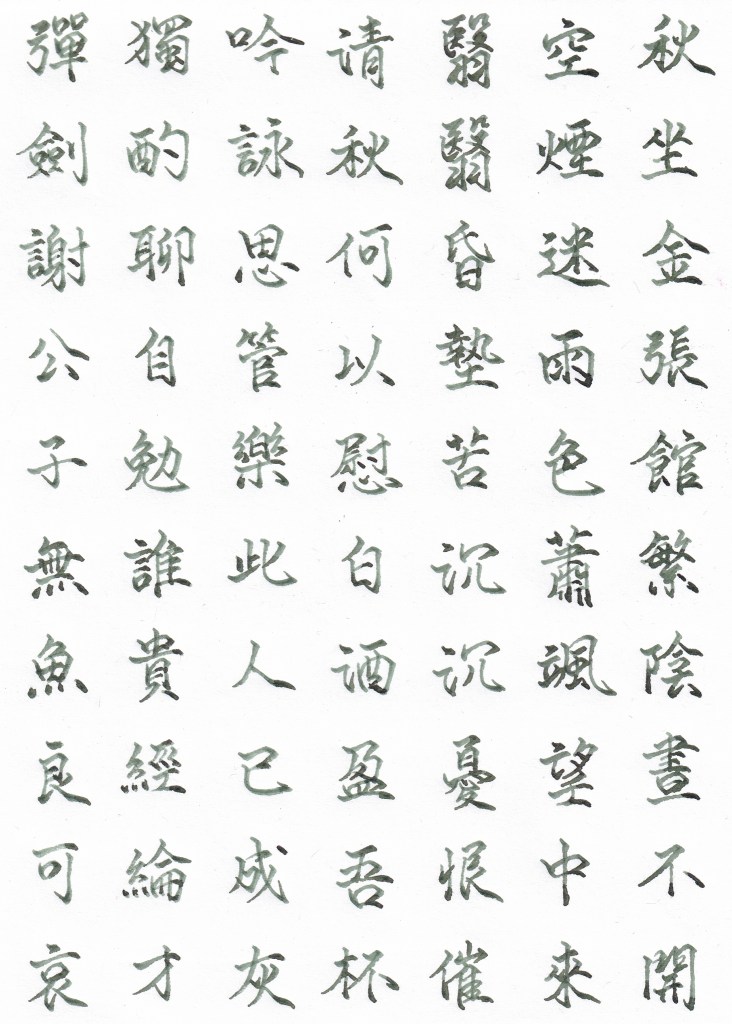 秋坐金張館繁陰晝不開
空煙迷雨色蕭颯望中來
翳翳昏墊苦沉沉憂恨催
清秋何以慰白酒盈吾杯
吟詠思管樂此人已成灰
獨酌聊自勉誰貴經綸才
彈劍謝公子無魚良可哀